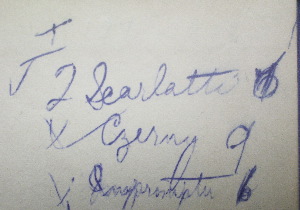 2 Scarlatti 6
X Czerny 9
Impromptu 6